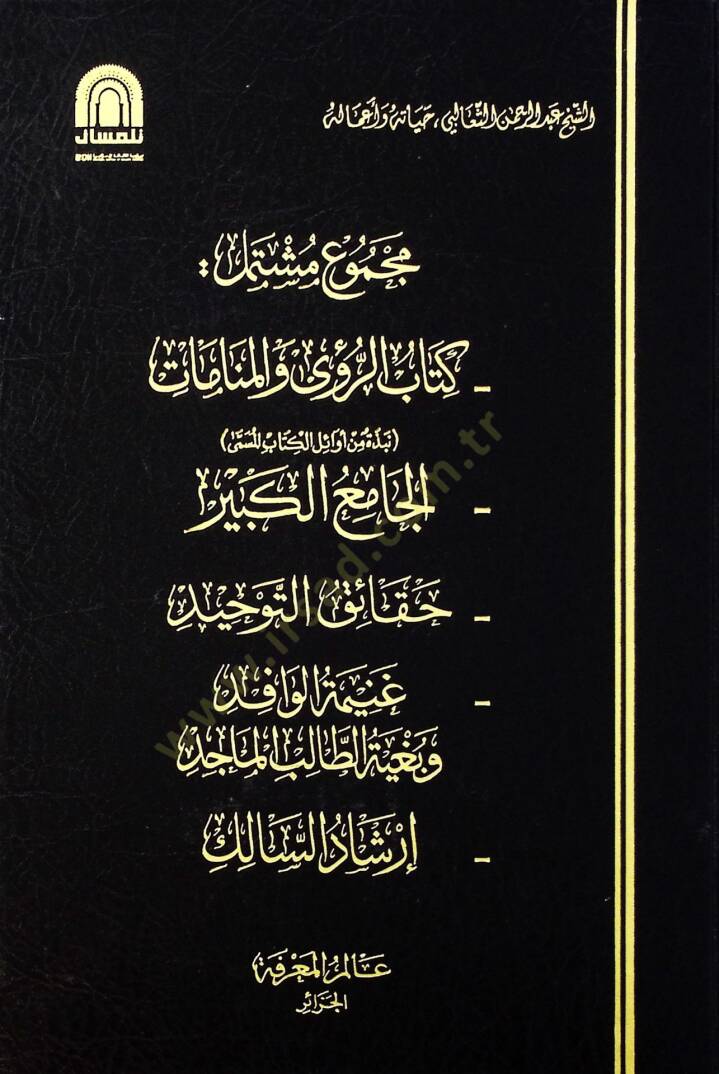 تلمسان
الشيخ عبد الرحمن الثعالبي، حياته وأعماله
مَجْمُوع مُشْتَمل :
- كِتَابُ الرُّؤى وَالمنَامَات
(نبذة من أوائل الكتاب المسمى)
- الجَامِعُ الكَبِيْر
- حَقَائِقُ التَّوْحِيدِ
- غَنِيمَةُ الوَافِدِ
وَبُغْيَةُ الطَّالِبِ المَاجِدِ
- إِرْشَادُ السَّالِكِ
عَالمُ المَعْرِفَة
الجَزَائِر
www.irsad.com.tr